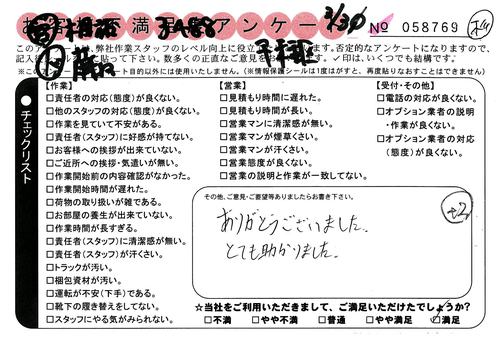 お客様不満足アンケート
2/30
No 058769
このアンケートは、弊社作業スタッフのレベル向上に役立
います。否定的なアンケートになりますので、
記入後シールを貼って下さい。数多くの正直なご意見をお
✓印は、いくつでも結構です。
ート目的以外には使用いたしません。(※情報保護シールは1度はがすと、再度貼りなおすことはできません)
チェックリスト
【作業】
□責任者の対応(態度)が良くない。
□他のスタッフの対応(態度)が良くない。
□作業を見ていて不安がある。
□責任者(スタッフ)に好感が持てない。
□お客様への挨拶が出来ていない。
□ご近所への挨拶・気遣いが無い。
□作業開始前の内容確認がなかった。
□作業開始時間が遅れた。
□荷物の取り扱いが雑である。
□お部屋の養生が出来ていない。
□作業時間が長すぎる。
□責任者(スタッフ)に清潔感が無い。
□責任者(スタッフ)が汗くさい。
□トラックが汚い。
□梱包資材が汚い。
□運転が不安(下手)である。
□靴下の履き替えをしてない。
□スタッフにやる気がみられない。
【営業】
□見積もり時間に遅れた。
□見積もり時間が長い。
□営業マンに清潔感が無い。
□営業マンが煙草くさい。
□営業マンが汗くさい。
□営業態度が良くない。
□営業の説明と作業が一致してない。
【受付・その他】
□電話の対応が良くない。
□オプション業者の説明
・作業が良くない。
□オプション業者の対応
(態度)が良くない。
その他、ご意見・ご要望等ありましたらお書き下さい。
ありがとうございました。
とても助かりました。
+2
☆当社をご利用いただきまして、ご満足いただけたでしょうか?
□不満 □やや不満 □普通 □やや満足 ☑満足